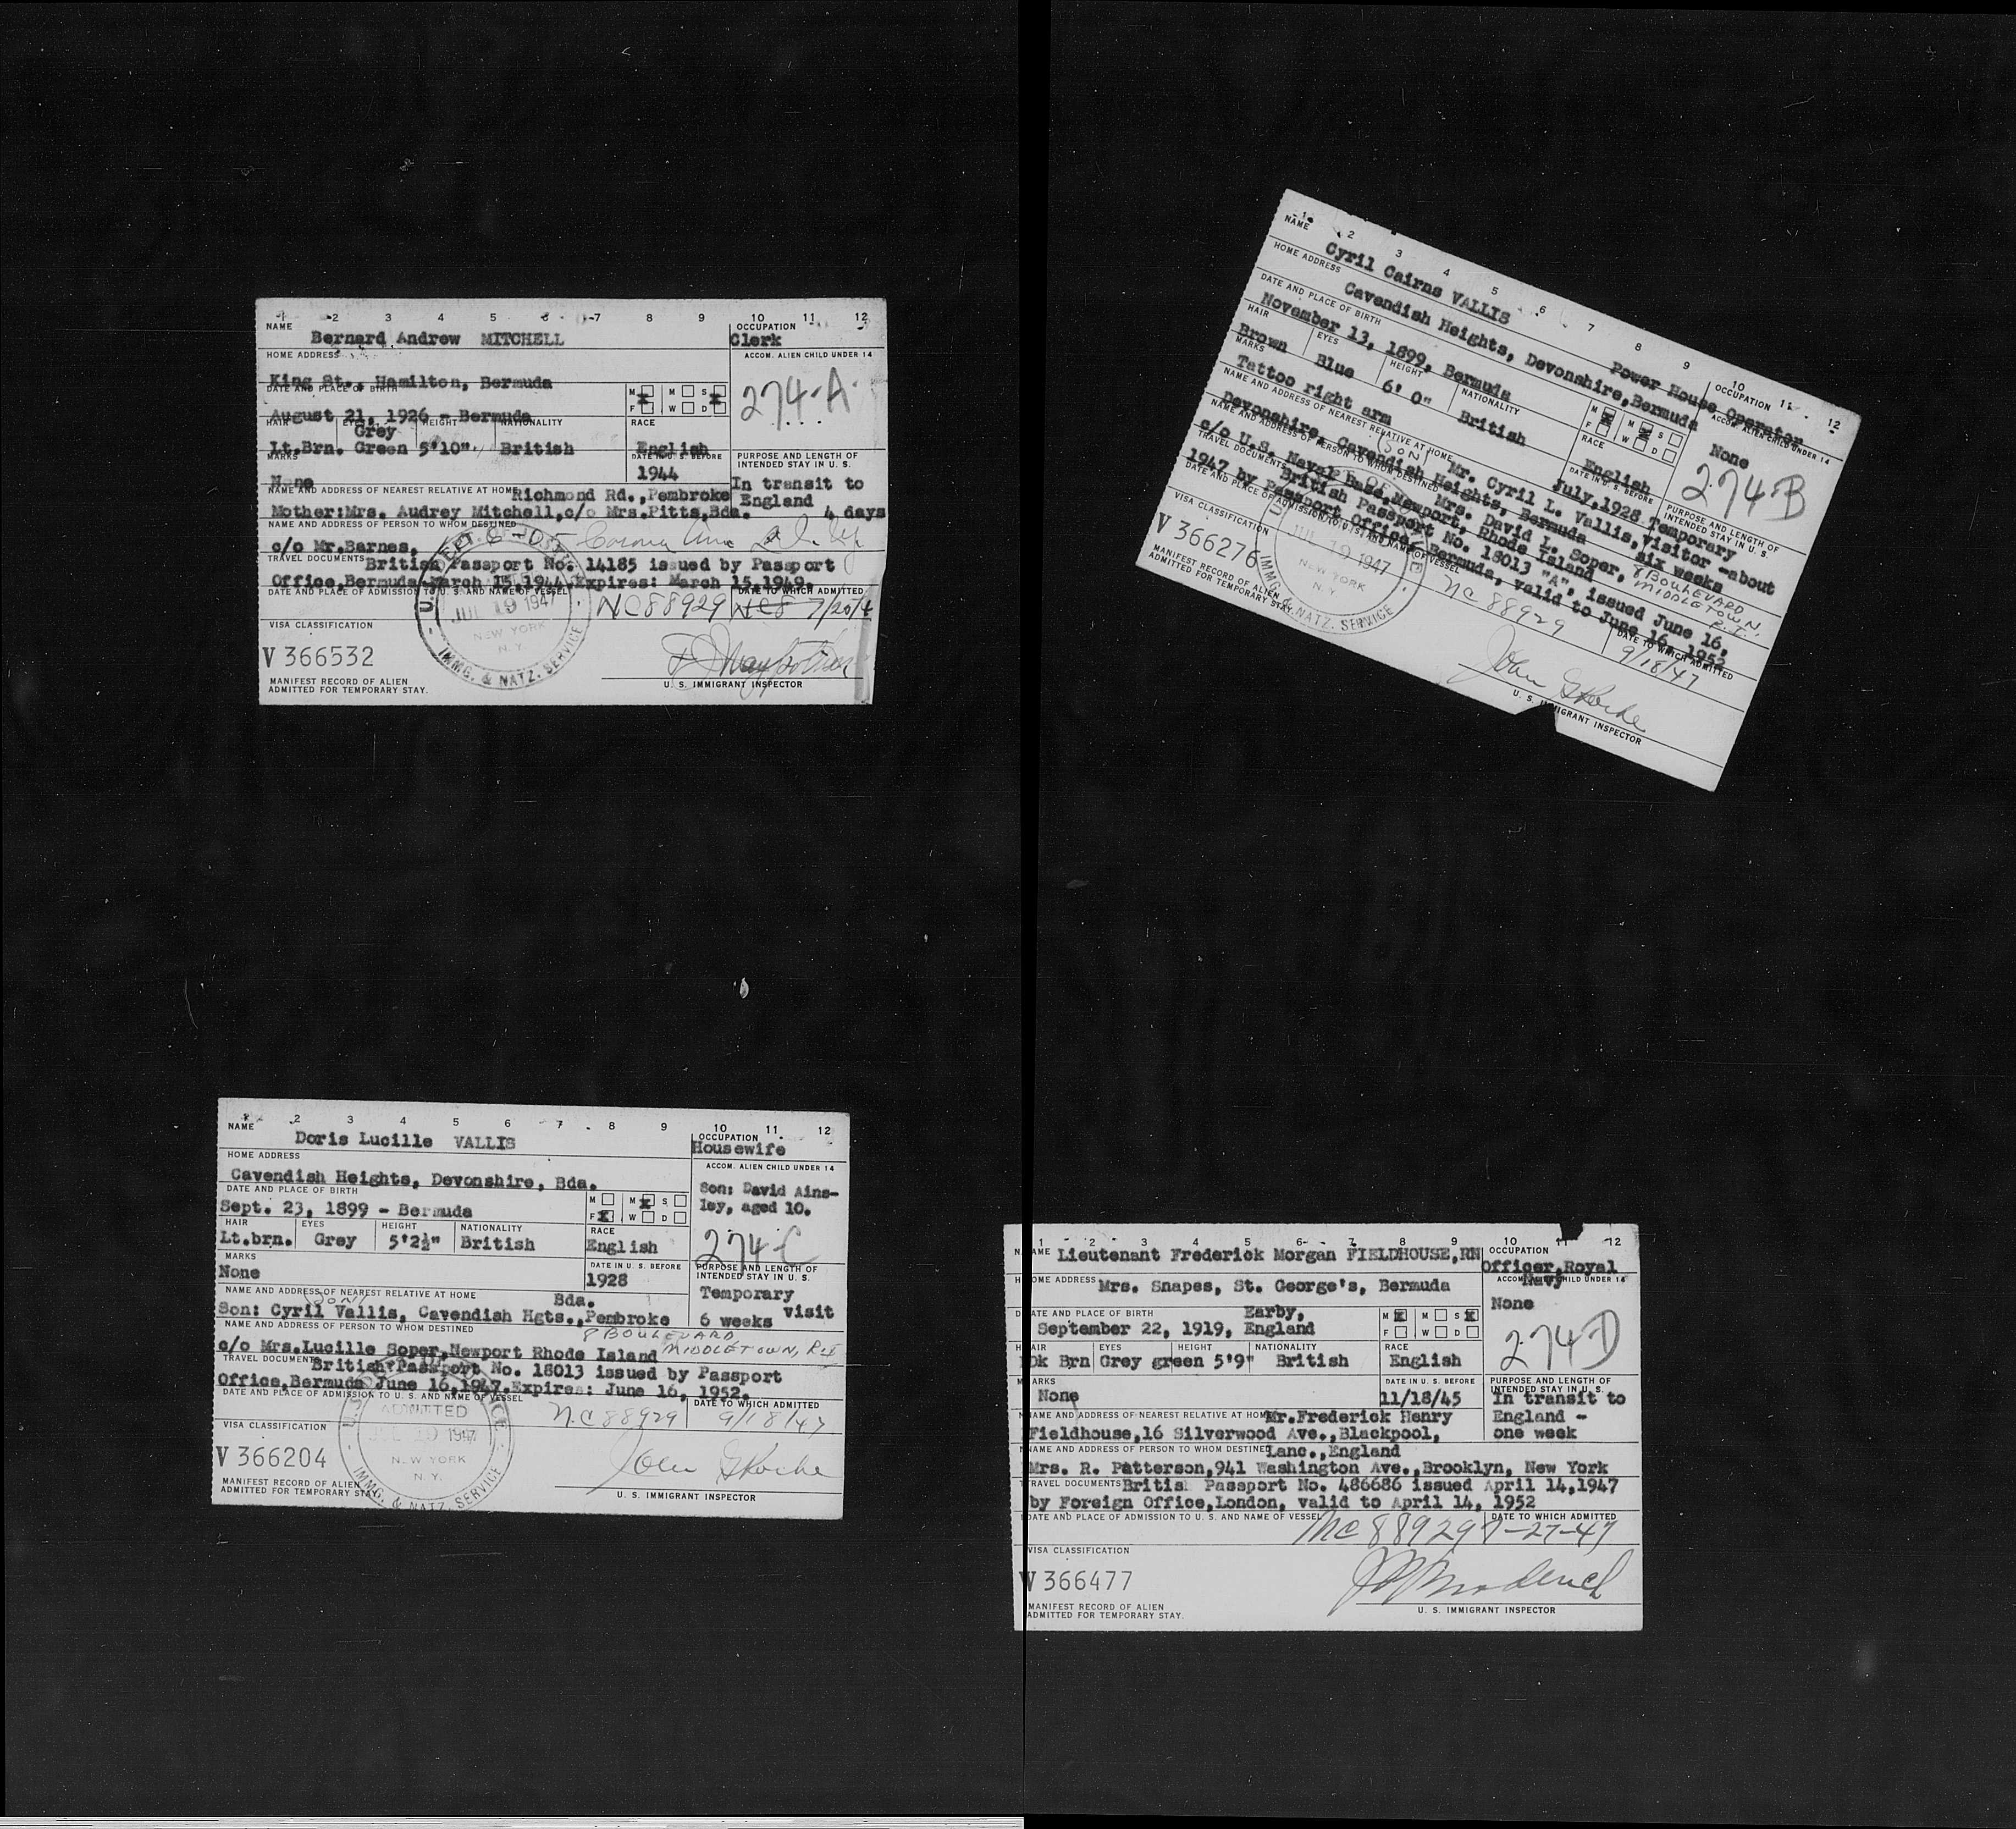 1 2 3 4 5 6 7 8 9 10 11 12
NAME Bernard Andrew MITCHELL
OCCUPATION Clerk
HOME ADDRESS
King St., Hamilton, Bermuda
ACCOM. ALIEN CHILD UNDER 14
274-A
DATE AND PLACE OF BIRTH
August 21, 1926 - Bermuda
M X M S X
F W D
HAIR EYES HEIGHT NATIONALITY RACE
Grey
Lt.Brn. Green 5'10" British English
MARKS
None
DATE IN U. S. BEFORE
1944
PURPOSE AND LENGTH OF INTENDED STAY IN U. S.
In transit to
England
4 days
NAME AND ADDRESS OF NEAREST RELATIVE AT HOME Richmond Rd.,Pembroke
Mother:Mrs. Audrey Mitchell,c/o Mrs.Pitts,Bda.
NAME AND ADDRESS OF PERSON TO WHOM DESTINED
c/o Mr.Barnes, Corona
TRAVEL DOCUMENTS British Passport No. 14185 issued by Passport
Office,Bermuda March 15,1944.Expires: March 15,1949.
DATE AND PLACE OF ADMISSION TO U. S. AND NAME OF VESSEL
NC88929
DATE TO WHICH ADMITTED
NC8 7/20/4
JUL 19 1947
NEW YORK
N. Y.
IMMG. & NATZ. SERVICE
VISA CLASSIFICATION
V 366532
MANIFEST RECORD OF ALIEN
ADMITTED FOR TEMPORARY STAY.
U. S. IMMIGRANT INSPECTOR
1 2 3 4 5 6 7 8 9 10 11 12
NAME Cyril Cairns VALLIS
OCCUPATION
Power House Operator
HOME ADDRESS
Cavendish Heights, Devonshire,Bermuda
ACCOM. ALIEN CHILD UNDER 14
None
274-B
DATE AND PLACE OF BIRTH
November 13, 1899, Bermuda
M X M X S
F W D
HAIR EYES HEIGHT NATIONALITY RACE
Brown Blue 6' 0" British English
MARKS
Tattoo right arm
DATE IN U. S. BEFORE
July,1928
PURPOSE AND LENGTH OF INTENDED STAY IN U. S.
Temporary
Visitor -about
six weeks
NAME AND ADDRESS OF NEAREST RELATIVE AT HOME
(SON) Mr. Cyril L. Vallis,
Devonshire, Cavendish Heights, Bermuda
NAME AND ADDRESS OF PERSON TO WHOM DESTINED
Mrs. David L. Soper, 8 BOULEVARD
c/o U.S. Naval Base,Newport, Rhode Island MIDDLETOWN, R.I.
TRAVEL DOCUMENTS British Passport No. 18013 "A", issued June 16,
1947 by Passport Office, Bermuda, valid to June 16, 1952
DATE AND PLACE OF ADMISSION TO U. S. AND NAME OF VESSEL
NC 88929
DATE TO WHICH ADMITTED
9/18/47
JUL 19 1947
NEW YORK
N. Y.
IMMG. & NATZ. SERVICE
VISA CLASSIFICATION
V 366276
MANIFEST RECORD OF ALIEN
ADMITTED FOR TEMPORARY STAY.
John G Roche
U. S. IMMIGRANT INSPECTOR
1 2 3 4 5 6 7 8 9 10 11 12
NAME Doris Lucille VALLIS
OCCUPATION
Housewife
HOME ADDRESS
Cavendish Heights, Devonshire, Bda.
ACCOM. ALIEN CHILD UNDER 14
Son: David Ains-
ley, aged 10.
274-C
DATE AND PLACE OF BIRTH
Sept. 23, 1899 - Bermuda
M M X S
F X W D
HAIR EYES HEIGHT NATIONALITY RACE
Lt.brn. Grey 5'2½" British English
MARKS
None
DATE IN U. S. BEFORE
1928
PURPOSE AND LENGTH OF INTENDED STAY IN U. S.
Temporary
visit
6 weeks
NAME AND ADDRESS OF NEAREST RELATIVE AT HOME
(SON) Bda.
Son: Cyril Vallis, Cavendish Hgts.,Pembroke
NAME AND ADDRESS OF PERSON TO WHOM DESTINED 8 BOULEVARD
c/o Mrs.Lucille Soper,Newport Rhode Island MIDDLETOWN, R.I
TRAVEL DOCUMENTS British Passport No. 18013 issued by Passport
Office,Bermuda June 16,1947.Expires: June 16, 1952.
DATE AND PLACE OF ADMISSION TO U. S. AND NAME OF VESSEL
N.C 88929
DATE TO WHICH ADMITTED
9/18/47
ADMITTED
JUL 19 1947
NEW YORK
N. Y.
IMMG. & NATZ. SERVICE
VISA CLASSIFICATION
V 366204
MANIFEST RECORD OF ALIEN
ADMITTED FOR TEMPORARY STAY.
John G Roche
U. S. IMMIGRANT INSPECTOR
1 2 3 4 5 6 7 8 9 10 11 12
NAME Lieutenant Frederick Morgan FIELDHOUSE,RN
OCCUPATION
Officer,Royal
Navy
HOME ADDRESS Mrs. Snapes, St. George's, Bermuda
ACCOM. ALIEN CHILD UNDER 14
None
274D
DATE AND PLACE OF BIRTH Earby,
September 22, 1919, England
M X M S X
F W D
HAIR EYES HEIGHT NATIONALITY RACE
Dk Brn Grey green 5'9" British English
MARKS
None
DATE IN U. S. BEFORE
11/18/45
PURPOSE AND LENGTH OF INTENDED STAY IN U. S.
In transit to
England -
one week
NAME AND ADDRESS OF NEAREST RELATIVE AT HOME Mr.Frederick Henry
Fieldhouse,16 Silverwood Ave.,Blackpool,
NAME AND ADDRESS OF PERSON TO WHOM DESTINED Lanc.,England
Mrs. R. Patterson,941 Washington Ave.,Brooklyn, New York
TRAVEL DOCUMENTS British Passport No. 486686 issued April 14,1947
by Foreign Office,London, valid to April 14, 1952
DATE AND PLACE OF ADMISSION TO U. S. AND NAME OF VESSEL
NC 88929
DATE TO WHICH ADMITTED
7-27-47
VISA CLASSIFICATION
V 366477
MANIFEST RECORD OF ALIEN
ADMITTED FOR TEMPORARY STAY.
U. S. IMMIGRANT INSPECTOR